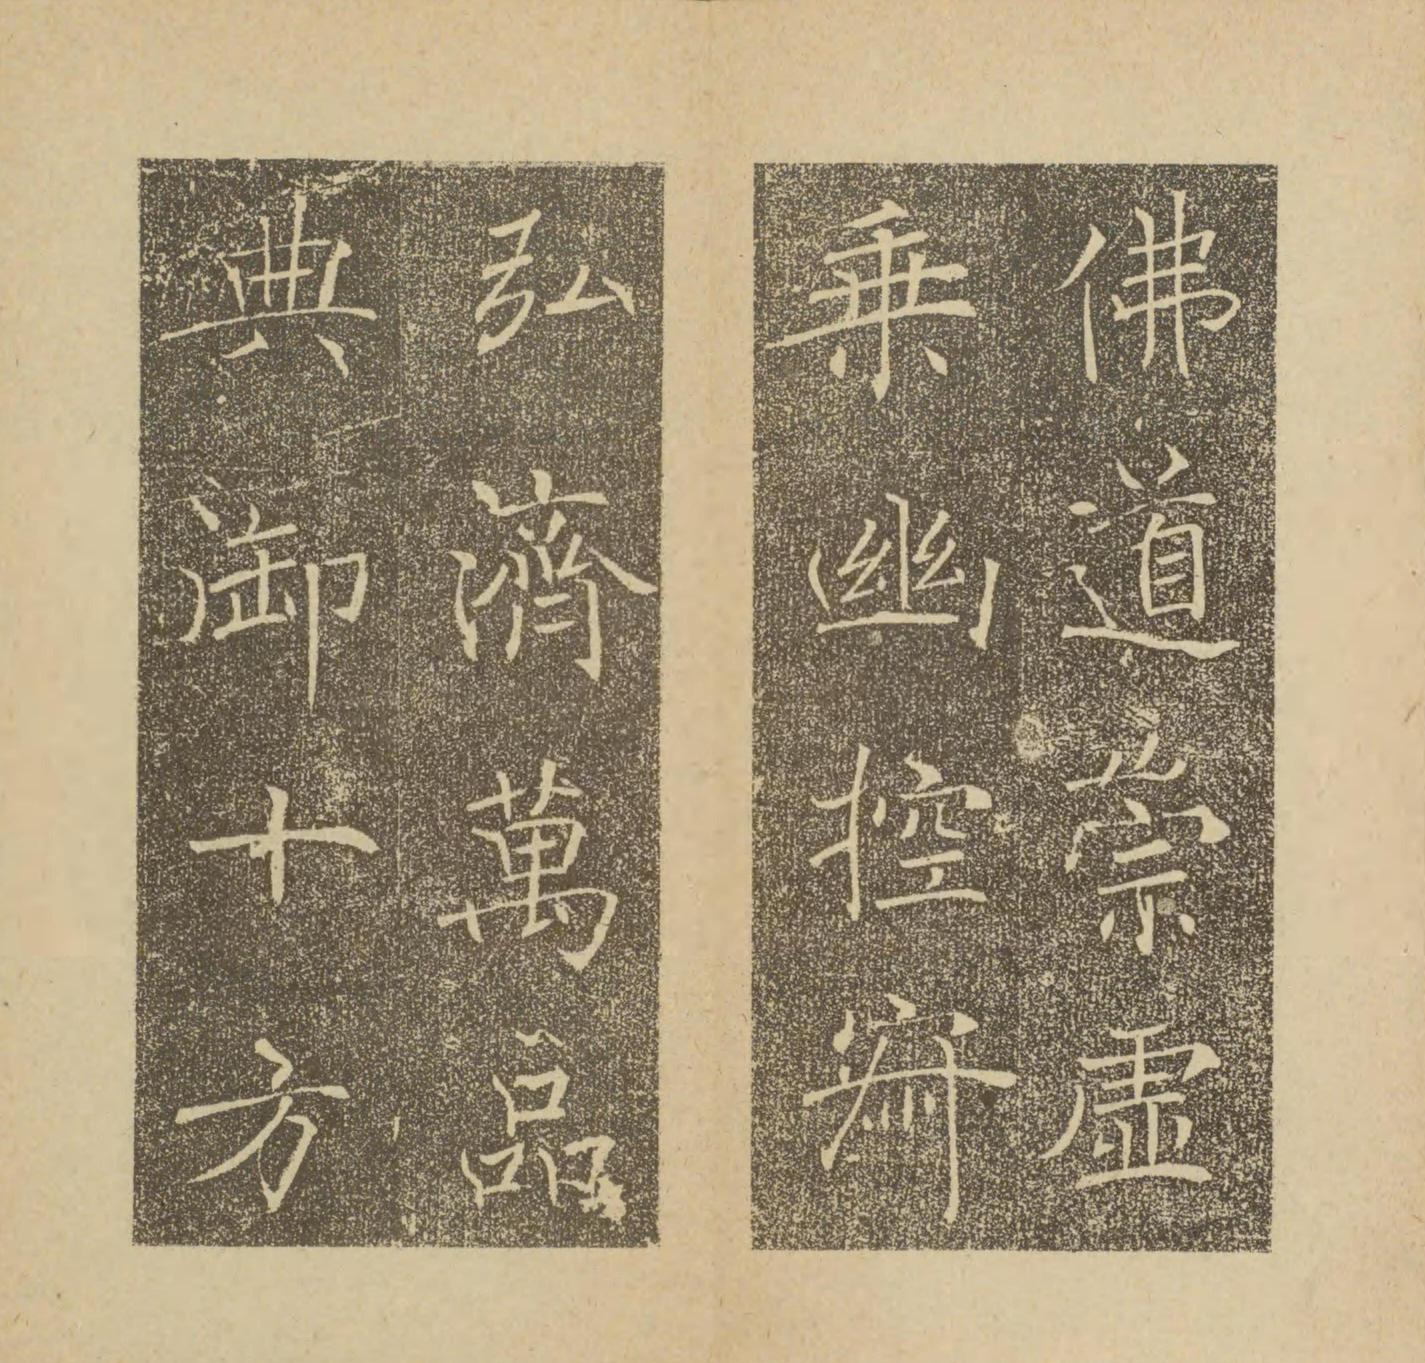 佛道崇虛
乗幽控寂
弘濟萬品
典御十方